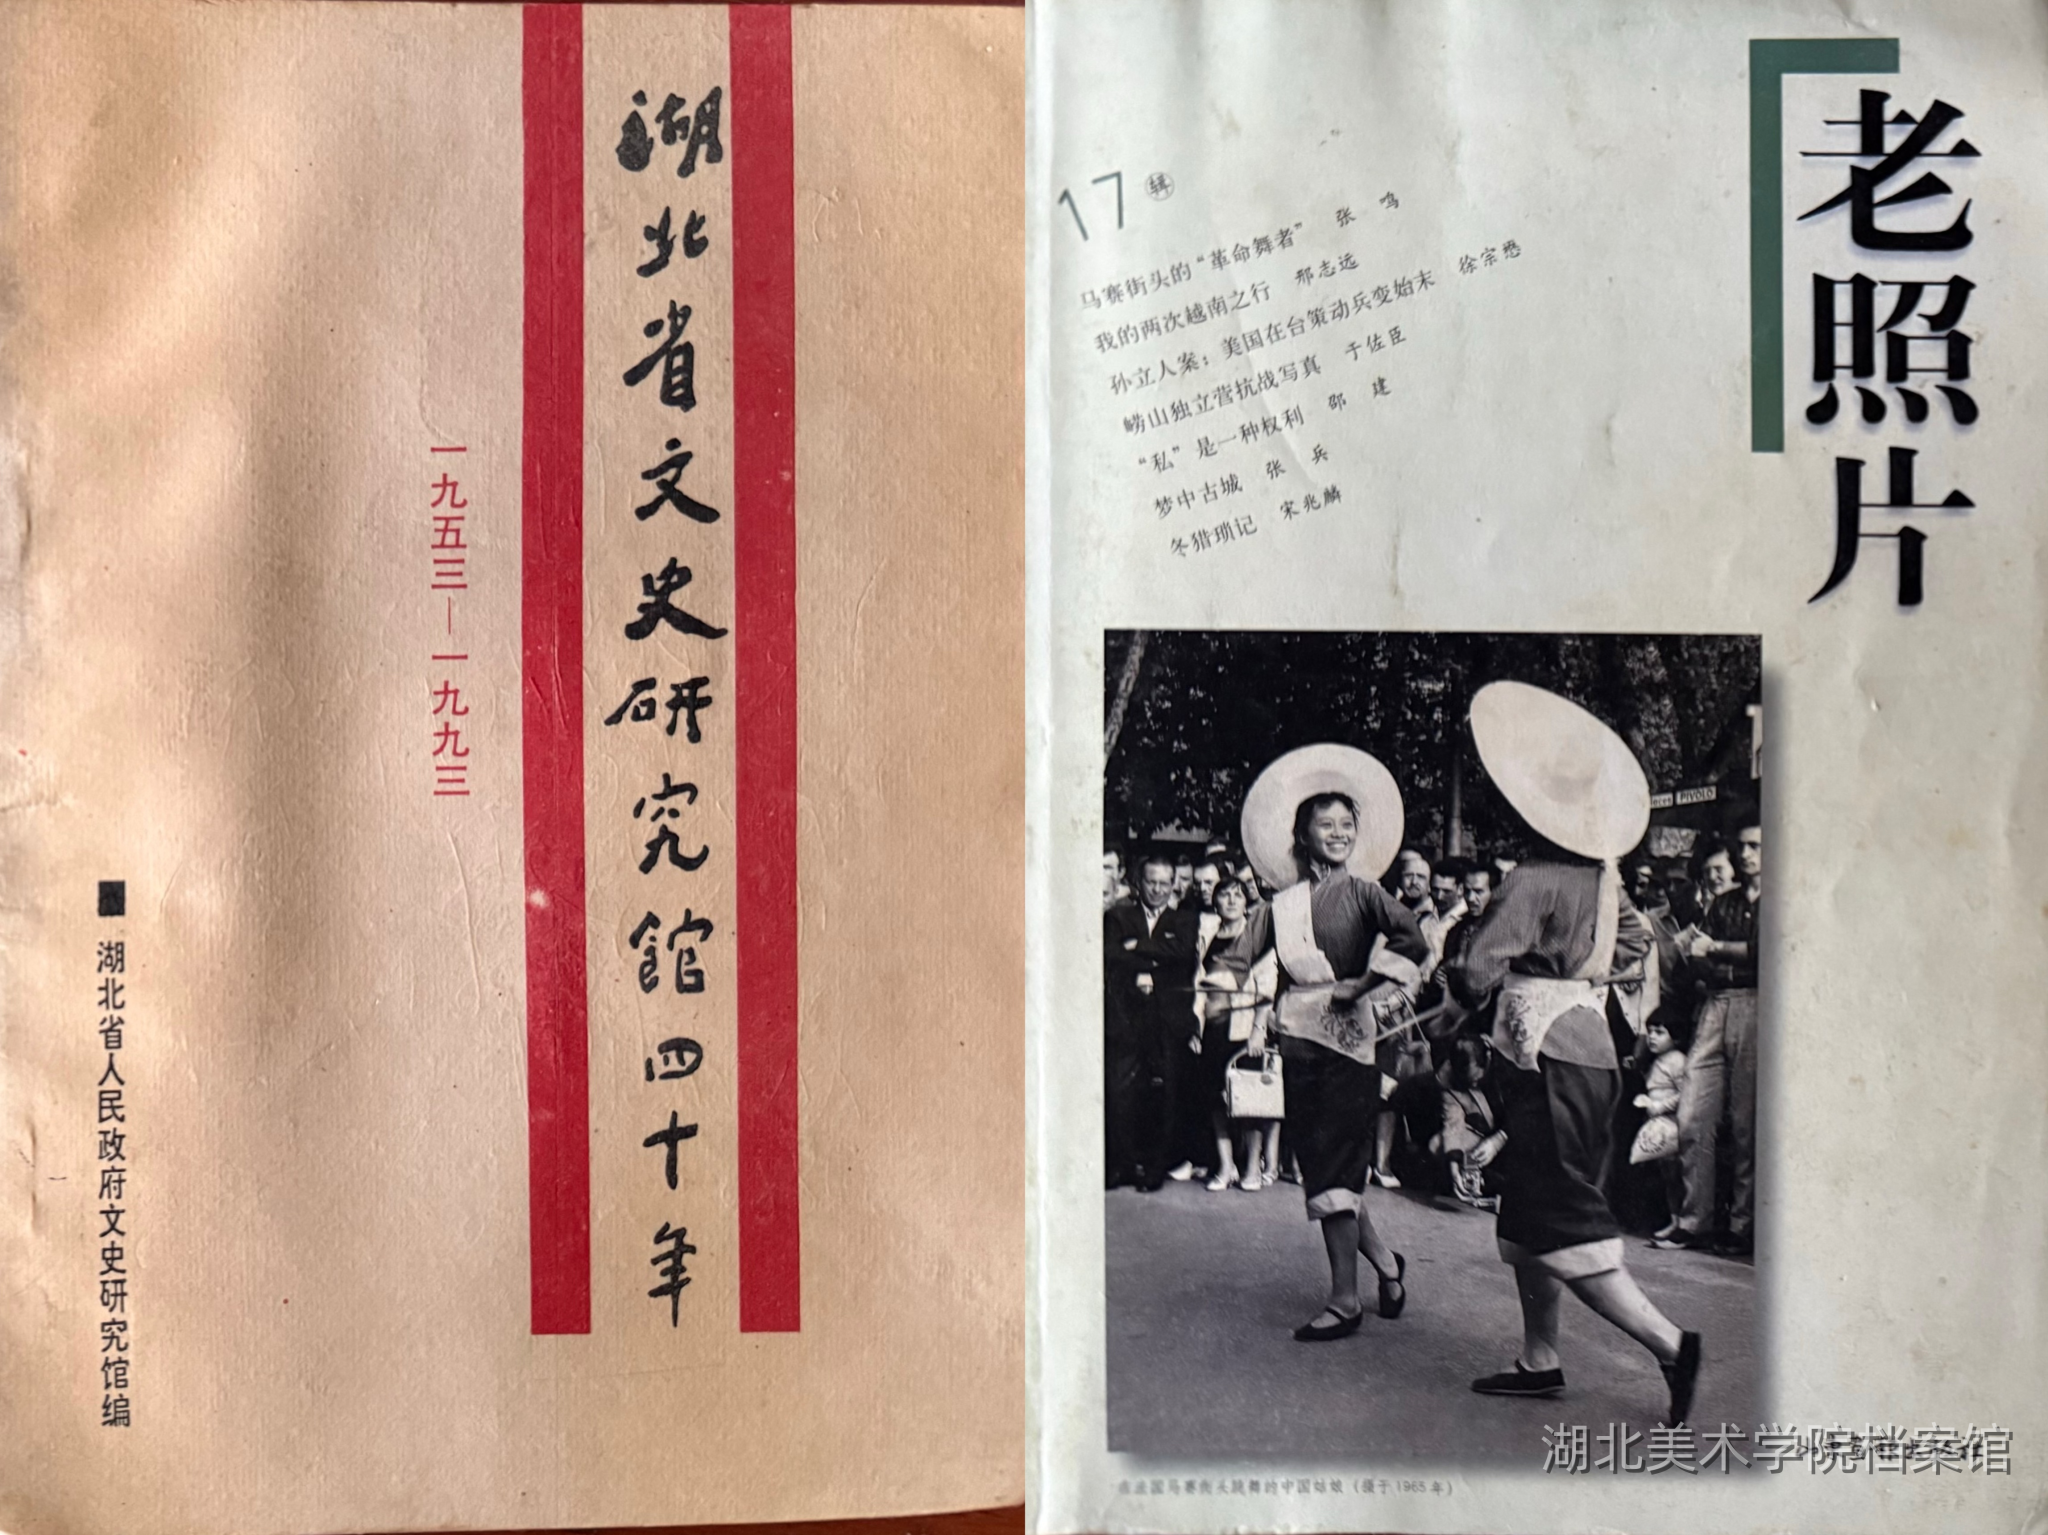 湖北省文史研究館四十年
一九五三—一九九三
■ 湖北省人民政府文史研究馆编
老照片
17辑
马赛街头的“革命舞者” 张 鸣
我的两次越南之行 邢志远
孙立人案：美国在台策动兵变始末 徐宗懋
崂山独立营抗战写真 于佐臣
“私”是一种权利 邵 建
梦中古城 张 兵
冬猎琐记 宋兆麟
PIVOLO
湖北美术学院档案馆
在法国马赛街头跳舞的中国姑娘（摄于1965年）